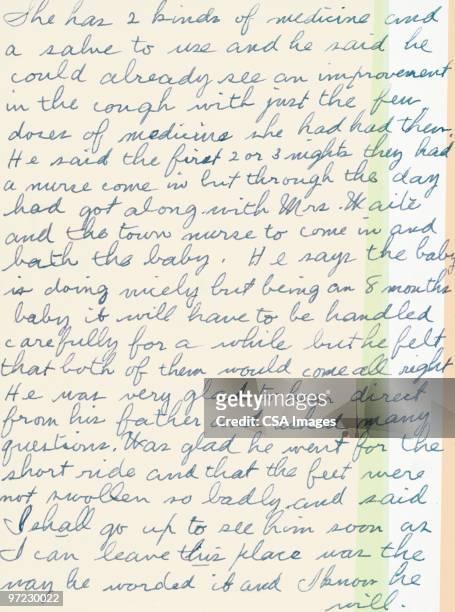 She has 2 kinds of medicine and
a salve to use and he said he
could already see an improvement
in the cough with just the few
doses of medicine she had had then.
He said the first 2 or 3 nights they had
a nurse come in but through the day
had got along with Mrs. Waite
and the town nurse to come in and
bath the baby. He says the baby
is doing nicely but being an 8 months
baby it will have to be handled
carefully for a while but he felt
that both of them would come all right
He was very glad to hear direct
from his father and asked many
questions. Was glad he went for the
short ride and that the feet were
not swollen so badly and said
I shall go up to see him soon as
I can leave this place was the
way he worded it and I know he
will
gettyimages
CSA Images
97230022